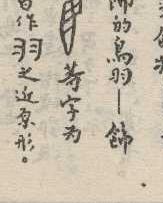 飾的鳥羽—飾
等字為
作羽之近原形。